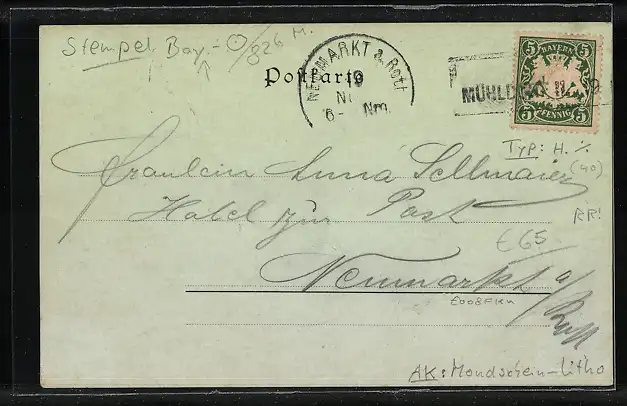 Stempel Bay.-O/826 M.
Postkarte
NEUMARKT a. Rott
19
6- Nm.
MÜHLD
5 BAYERN 5
5 PFENNIG 5
Typ: H.
(40)
Fräulein Anna Sellmaier
Hotel zür Post
RR!
€65.-
Neumarkt a/
Rott
AK: Mondschein-Litho